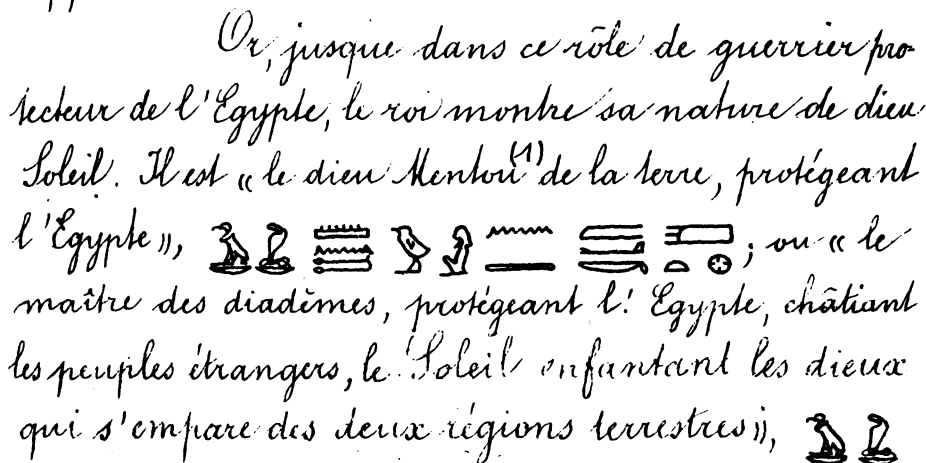 Or, jusque dans ce rôle de guerrier pro-
tecteur de l'Egypte, le roi montre sa nature de dieu
Soleil. Il est « le dieu Mentou (1) de la terre, protégeant
l'Egypte », ; ou « le
maître des diadèmes, protégeant l'Egypte, châtiant
les peuples étrangers, le Soleil enfantant les dieux
qui s'empare des deux régions terrestres »,